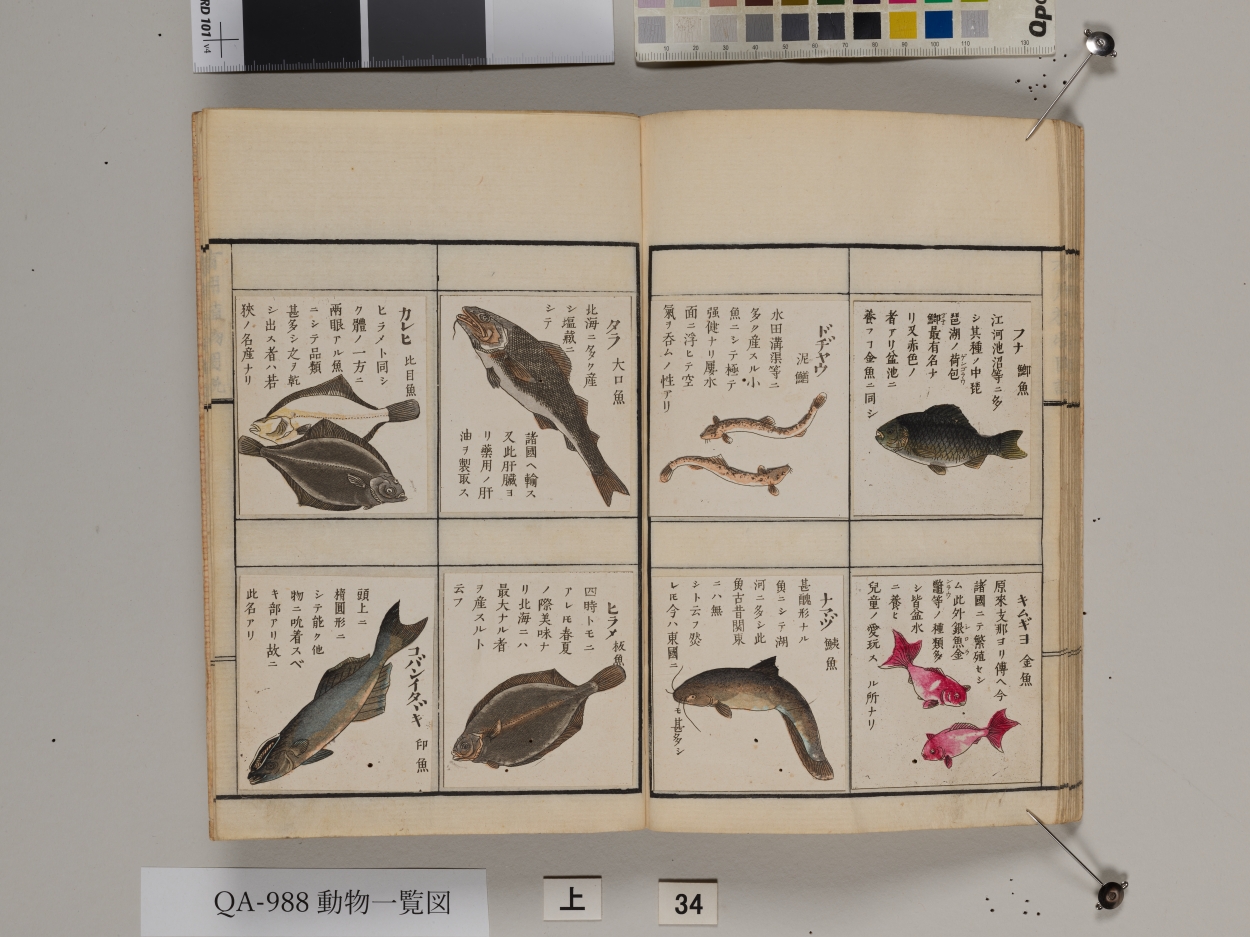 フナ 鯽魚
江河池沼等ニ多
シ其種ノ中琵
琶湖ノ荷包
鯽最有名ナ
リ又赤色ノ
者アリ盆池ニ
養フコ金魚ニ同シ
ドヂヤウ
泥鰌
水田溝渠等ニ
多ク産スル小
魚ニシテ極テ
强健ナリ屡水
面ニ浮ヒテ空
氣ヲ呑ムノ性アリ
キムギヨ 金魚
原來支那ヨリ傳ヘ今
諸國ニテ繁殖セシ
ム此外銀魚金
等ノ種類多
シ皆盆水
ニ養ヒ
兒童ノ愛玩スル所ナリ
ナマヅ 鮧魚
甚醜形ナル
魚ニシテ湖
河ニ多シ此
魚古昔関東
ニハ無
シト云フ然
レモ今ハ東國ニモ甚多シ
タラ 大口魚
北海ニ多ク産
シ塩藏ニ
シテ
諸國ヘ輸ス
又此肝臓ヨ
リ藥用ノ肝
油ヲ製取ス
カレヒ 比目魚
ヒラメト同シ
ク體ノ一方ニ
兩眼アル魚
ニシテ品類
甚多シ之ヲ乾
シ出ス者ハ若
狹ノ名産ナリ
ヒラメ 板魚
四時トモニ
アレモ春夏
ノ際美味ナ
リ北海ニハ
最大ナル者
ヲ産スルト
云フ
コバンイタヾキ 印魚
頭上ニ
橢圓形ニ
シテ能ク他
物ニ吮着スベ
キ部アリ故ニ
此名アリ
QA-988 動物一覧図
上
34